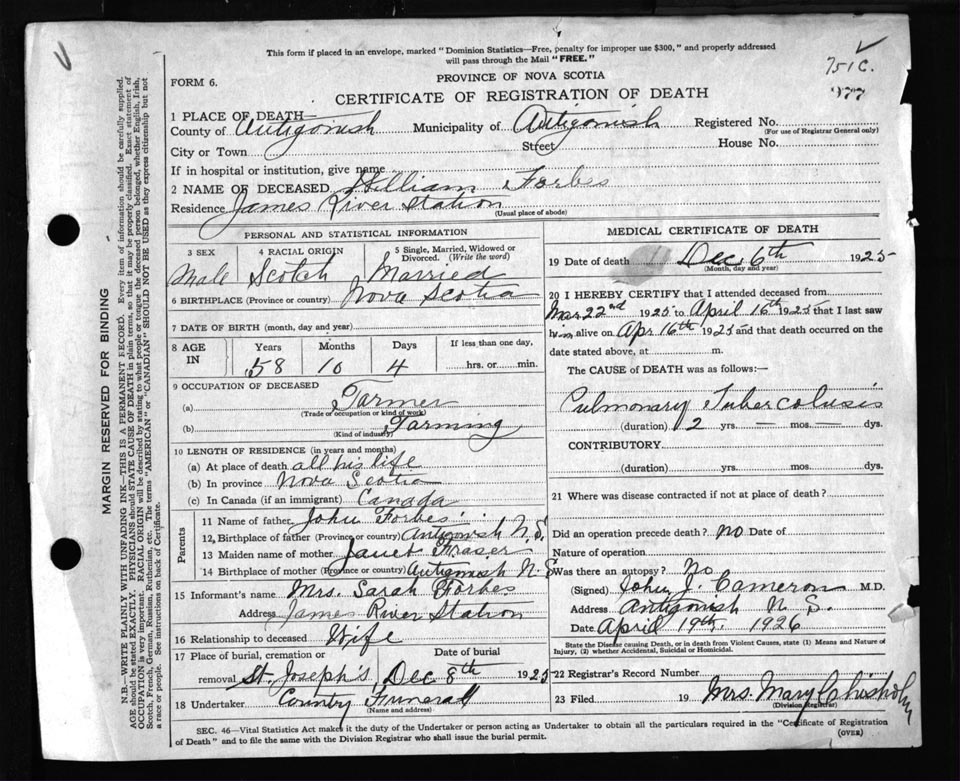 This form if placed in an envelope, marked "Dominion Statistics—Free, penalty for improper use $300," and properly addressed
will pass through the Mail "FREE."
751C.
977
FORM 6.
PROVINCE OF NOVA SCOTIA
CERTIFICATE OF REGISTRATION OF DEATH
1 PLACE OF DEATH—
County of Antigonish Municipality of Antigonish Registered No.
(For use of Registrar General only)
City or Town Street House No.
If in hospital or institution, give name
2 NAME OF DECEASED William Forbes
Residence James River Station
(Usual place of abode)
PERSONAL AND STATISTICAL INFORMATION
3 SEX 4 RACIAL ORIGIN 5 Single, Married, Widowed or
Divorced. (Write the word)
Male Scotch Married
6 BIRTHPLACE (Province or country) Nova Scotia
7 DATE OF BIRTH (month, day and year)
8 AGE IN Years Months Days If less than one day,
58 10 4 hrs. or min.
9 OCCUPATION OF DECEASED
(a) Farmer
(Trade or occupation or kind of work)
(b) Farming
(Kind of industry)
10 LENGTH OF RESIDENCE (in years and months)
(a) At place of death all his life
(b) In province Nova Scotia
(c) In Canada (if an immigrant) Canada
Parents
11 Name of father John Forbes
12 Birthplace of father (Province or country) Antigonish N.S.
13 Maiden name of mother Janet Fraser
14 Birthplace of mother (Province or country) Antigonish N.S
15 Informant's name Mrs. Sarah Forbes
Address James River Station
16 Relationship to deceased Wife
17 Place of burial, cremation or Date of burial
removal St. Joseph's Dec 8th 1925
18 Undertaker Country Funeral
(Name and address)
MEDICAL CERTIFICATE OF DEATH
19 Date of death Dec 6th 1925
(Month, day and year)
20 I HEREBY CERTIFY that I attended deceased from
Mar 22nd 1925 to April 16th 1925 that I last saw
him alive on Apr 16th 1925 and that death occurred on the
date stated above, at m.
The CAUSE of DEATH was as follows:—
Pulmonary Tuberculusis
(duration) 2 yrs. — mos. — dys.
CONTRIBUTORY.
(duration) yrs. mos. dys.
21 Where was disease contracted if not at place of death?
Did an operation precede death? no Date of
Nature of operation
Was there an autopsy? No
(Signed) John J. Cameron M.D.
Address Antigonish N.S.
Date April 19th. 1926
State the Disease causing Death, or in death from Violent Causes, state (1) Means and Nature of
Injury, (2) whether Accidental, Suicidal or Homicidal.
22 Registrar's Record Number
23 Filed 19 Mrs. Mary Chisholm
(Division Registrar)
SEC. 46—Vital Statistics Act makes it the duty of the Undertaker or person acting as Undertaker to obtain all the particulars required in the "Certificate of Registration
of Death" and to file the same with the Division Registrar who shall issue the burial permit.
(OVER)
MARGIN RESERVED FOR BINDING
N.B.—WRITE PLAINLY WITH UNFADING INK—THIS IS A PERMANENT RECORD. Every item of information should be carefully supplied.
AGE should be stated EXACTLY. PHYSICIANS should STATE CAUSE OF DEATH in plain terms, so that it may be properly classified. Exact statement of
OCCUPATION is very important. RACIAL ORIGIN will be described by stating to what people or tongue the deceased person belonged, whether English, Irish,
Scotch, French, German, Russian, Ruthenian, etc. The terms "AMERICAN" or "CANADIAN" SHOULD NOT BE USED as they express citizenship but not
a race or people. See instructions on back of Certificate.